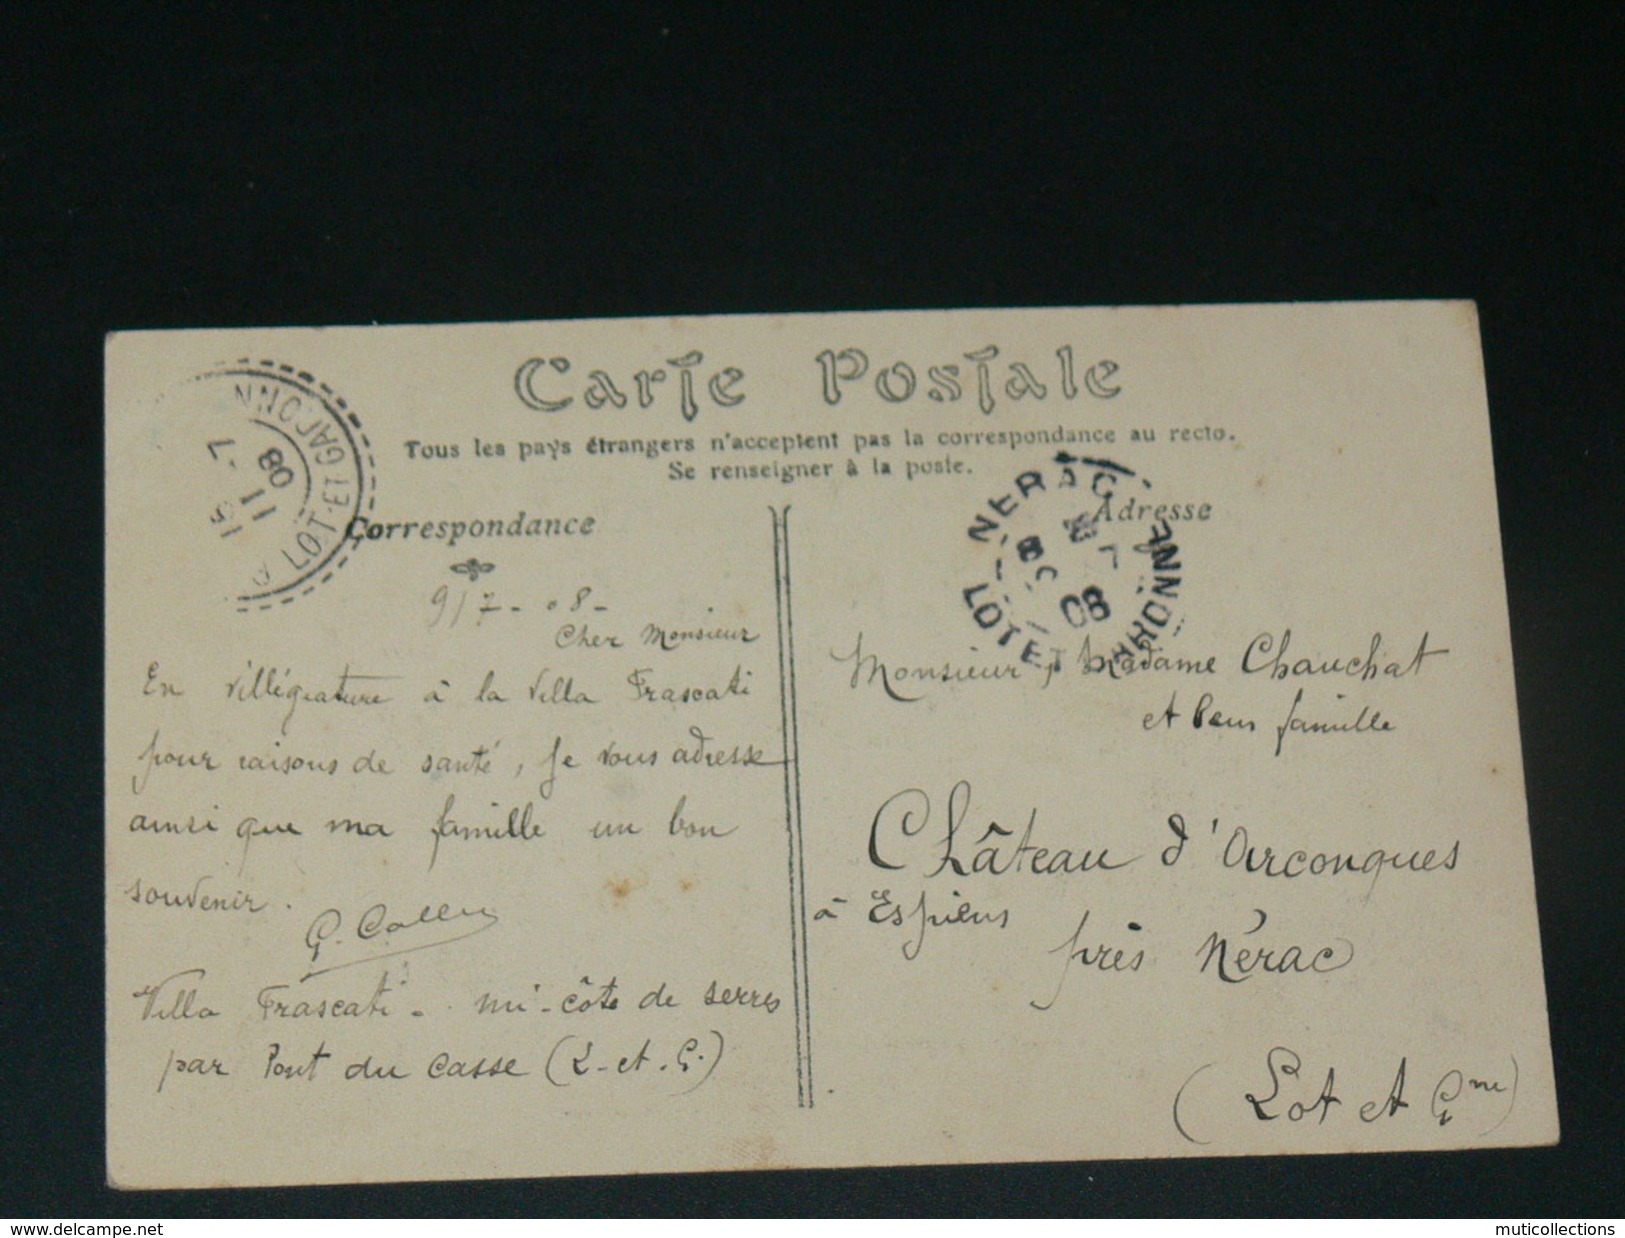 Carte Postale
Tous les pays étrangers n'acceptent pas la correspondance au recto.
Se renseigner à la poste.
Correspondance
Adresse
LOT-ET-GARONN
15 -7
11
08
NERAC
8
7
08
LOT ET GARONNE
9/7 - 08 -
Cher Monsieur
En villégiature à la Villa Frascati
pour raisons de santé, je vous adresse
ainsi que ma famille un bon
souvenir.
Villa Frascati - mi-côte de serres
par Pont du Casse (L-et-G.)
Monsieur, Madame Chauchat
et leur famille
Château d'Arconques
à Espiens
près Nérac
(Lot et Gne)
www.delcampe.net
muticollections